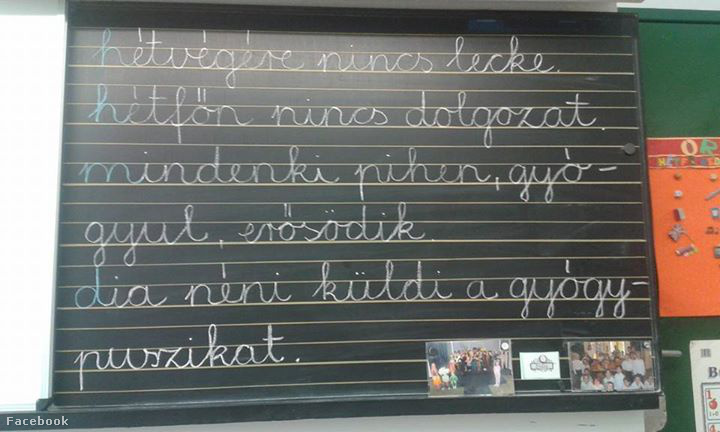 hétvégére nincs lecke.
hétfőn nincs dolgozat.
mindenki pihen, gyó-
gyul, erősödik.
dia néni küldi a gyógy-
puszikat.
OR
Facebook